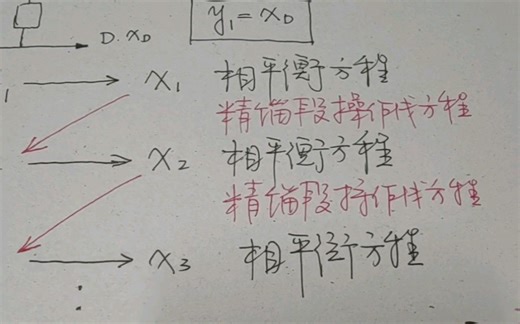 D. x_D
y₁ = x_D
1 → x₁ 相平衡方程
精馏段操作线方程
→ x₂ 相平衡方程
精馏段操作线方程
→ x₃ 相平衡方程
⋮